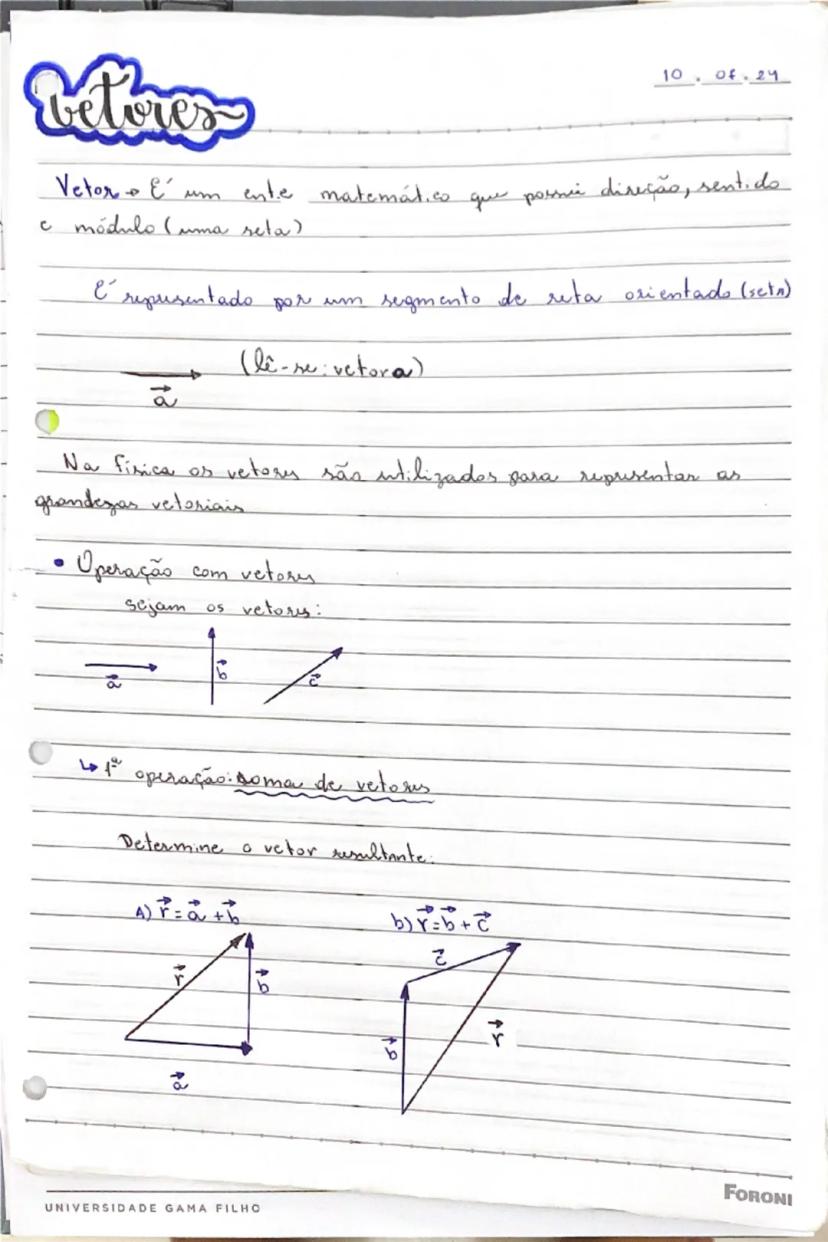 vetores
10 . 05 . 24
Vetor → É um ente matemático que possui direção, sentido
e módulo (uma seta)
É representado por um segmento de reta orientado (seta)
(lê-se: vetor a)
a⃗
Na física os vetores são utilizados para representar as
grandezas vetoriais
• Operação com vetores
sejam os vetores:
a⃗ b⃗ c⃗
↳ 1ª operação: soma de vetores
Determine o vetor resultante:
A) r⃗ = a⃗ + b⃗
b) r⃗ = b⃗ + c⃗
r⃗ b⃗
a⃗
c⃗
b⃗ r⃗
FORONI
UNIVERSIDADE GAMA FILHO